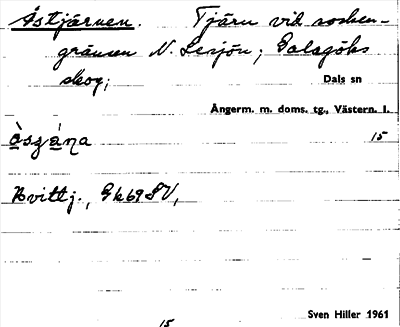 Åstjärnen. Tjärn vid socken-
gränsen N. Lesjön;
skog;
Dals sn
Ångerm. m. doms. tg., Västern. l.
15
Kvittj., Gk69SV,
Sven Hiller 1961
15